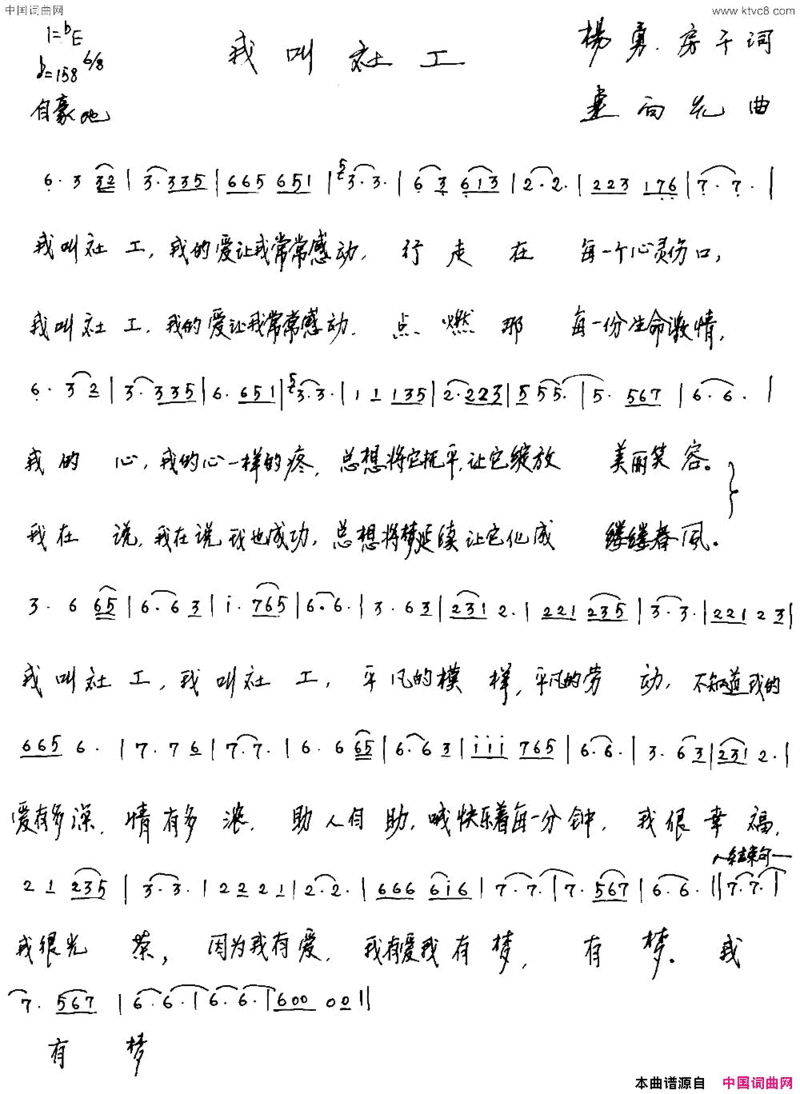 中国词曲网 www.ktvc8.com
1=bE
我叫社工 杨勇.房千词
♩=158 6/8
自豪地 曲
6. 3 32 | 3. 335 | 665 651 | 3. 3. | 6 3 613 | 2. 2. | 223 176 | 7. 7. |
我叫社工,我的爱让我常常感动,行走在每一个心灵伤口,
我叫社工,我的爱让我常常感动.点燃那每一份生命激情,
6. 3 2 | 3. 335 | 6. 651 | 3. 3. | 1 1 135 | 2. 223 | 5 55. | 5. 567 | 6. 6. |
我的心,我的心一样的疼,总想将它抚平,让它绽放美丽笑容。
我在说,我在说我也成功,总想将梦延续让它化成缕缕春风。
3. 6 65 | 6. 6 3 | i. 765 | 6. 6. | 3. 6 3 | 231 2. | 221 235 | 3. 3. | 221 2 3 |
我叫社工,我叫社工,平凡的模样,平凡的劳动,不知道我的
665 6. | 7. 7 6 | 7. 7. | 6. 6 65 | 6. 6 3 | iii 765 | 6. 6. | 3. 6 3 | 231 2. |
爱有多深,情有多浓.助人自助,喊快乐着每一分钟,我很幸福,
结束句
2 1 235 | 3. 3. | 2 2 2 1 | 2. 2. | 666 6i6 | 7. 7. | 7. 567 | 6. 6. || 7. 7. |
我很光荣,因为我有爱.我有爱我有梦,有梦。我
7. 567 | 6. 6. | 6. 6. | 600 00 ||
有梦
本曲谱源自 中国词曲网